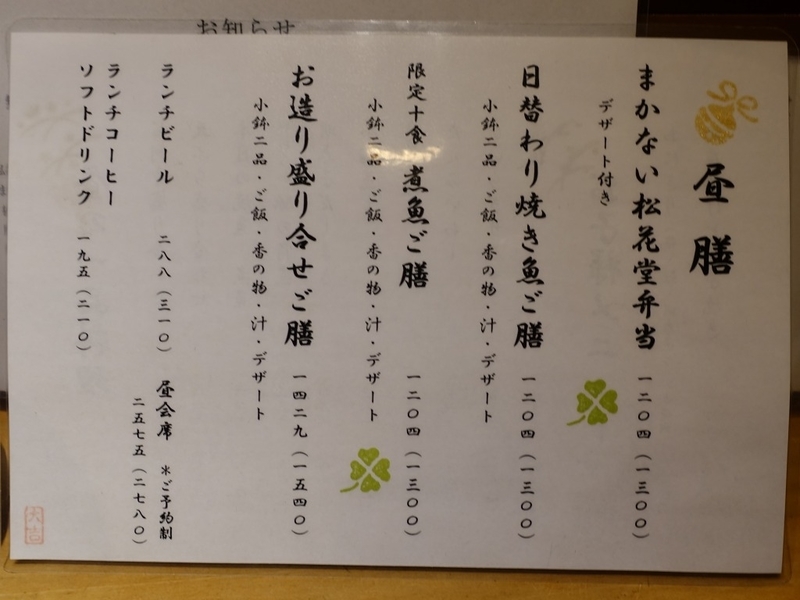 お知らせ
昼膳
まかない松花堂弁当 一二〇四(一三〇〇)
デザート付き
日替わり焼き魚ご膳 一二〇四(一三〇〇)
小鉢二品・ご飯・香の物・汁・デザート
限定十食 煮魚ご膳 一二〇四(一三〇〇)
小鉢二品・ご飯・香の物・汁・デザート
お造り盛り合せご膳 一四二九(一五四〇)
小鉢二品・ご飯・香の物・汁・デザート
ランチビール 二八八(三一〇)
ランチコーヒー
ソフトドリンク 一九五(二一〇)
昼会席 *ご予約制
二五七五(二七八〇)
六吉